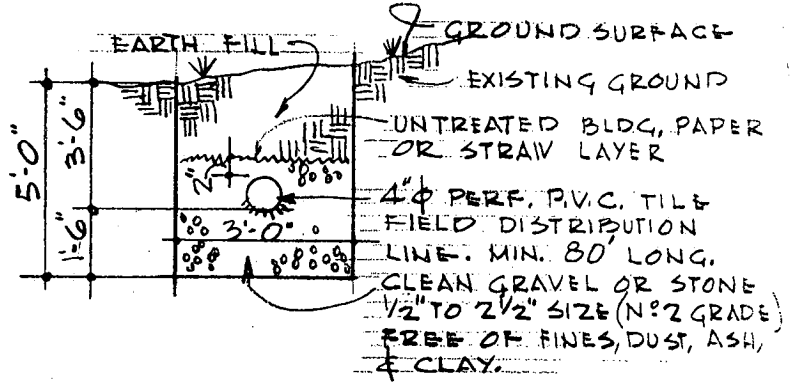 EARTH FILL
GROUND SURFACE
EXISTING GROUND
UNTREATED BLDG. PAPER
OR STRAW LAYER
4"φ PERF. P.V.C. TILE
FIELD DISTRIBUTION
LINE. MIN. 80' LONG.
CLEAN GRAVEL OR STONE
1/2" TO 2 1/2" SIZE (Nº2 GRADE)
FREE OF FINES, DUST, ASH,
& CLAY.
5'-0"
3'-6"
1'-6"
2"
3'-0"